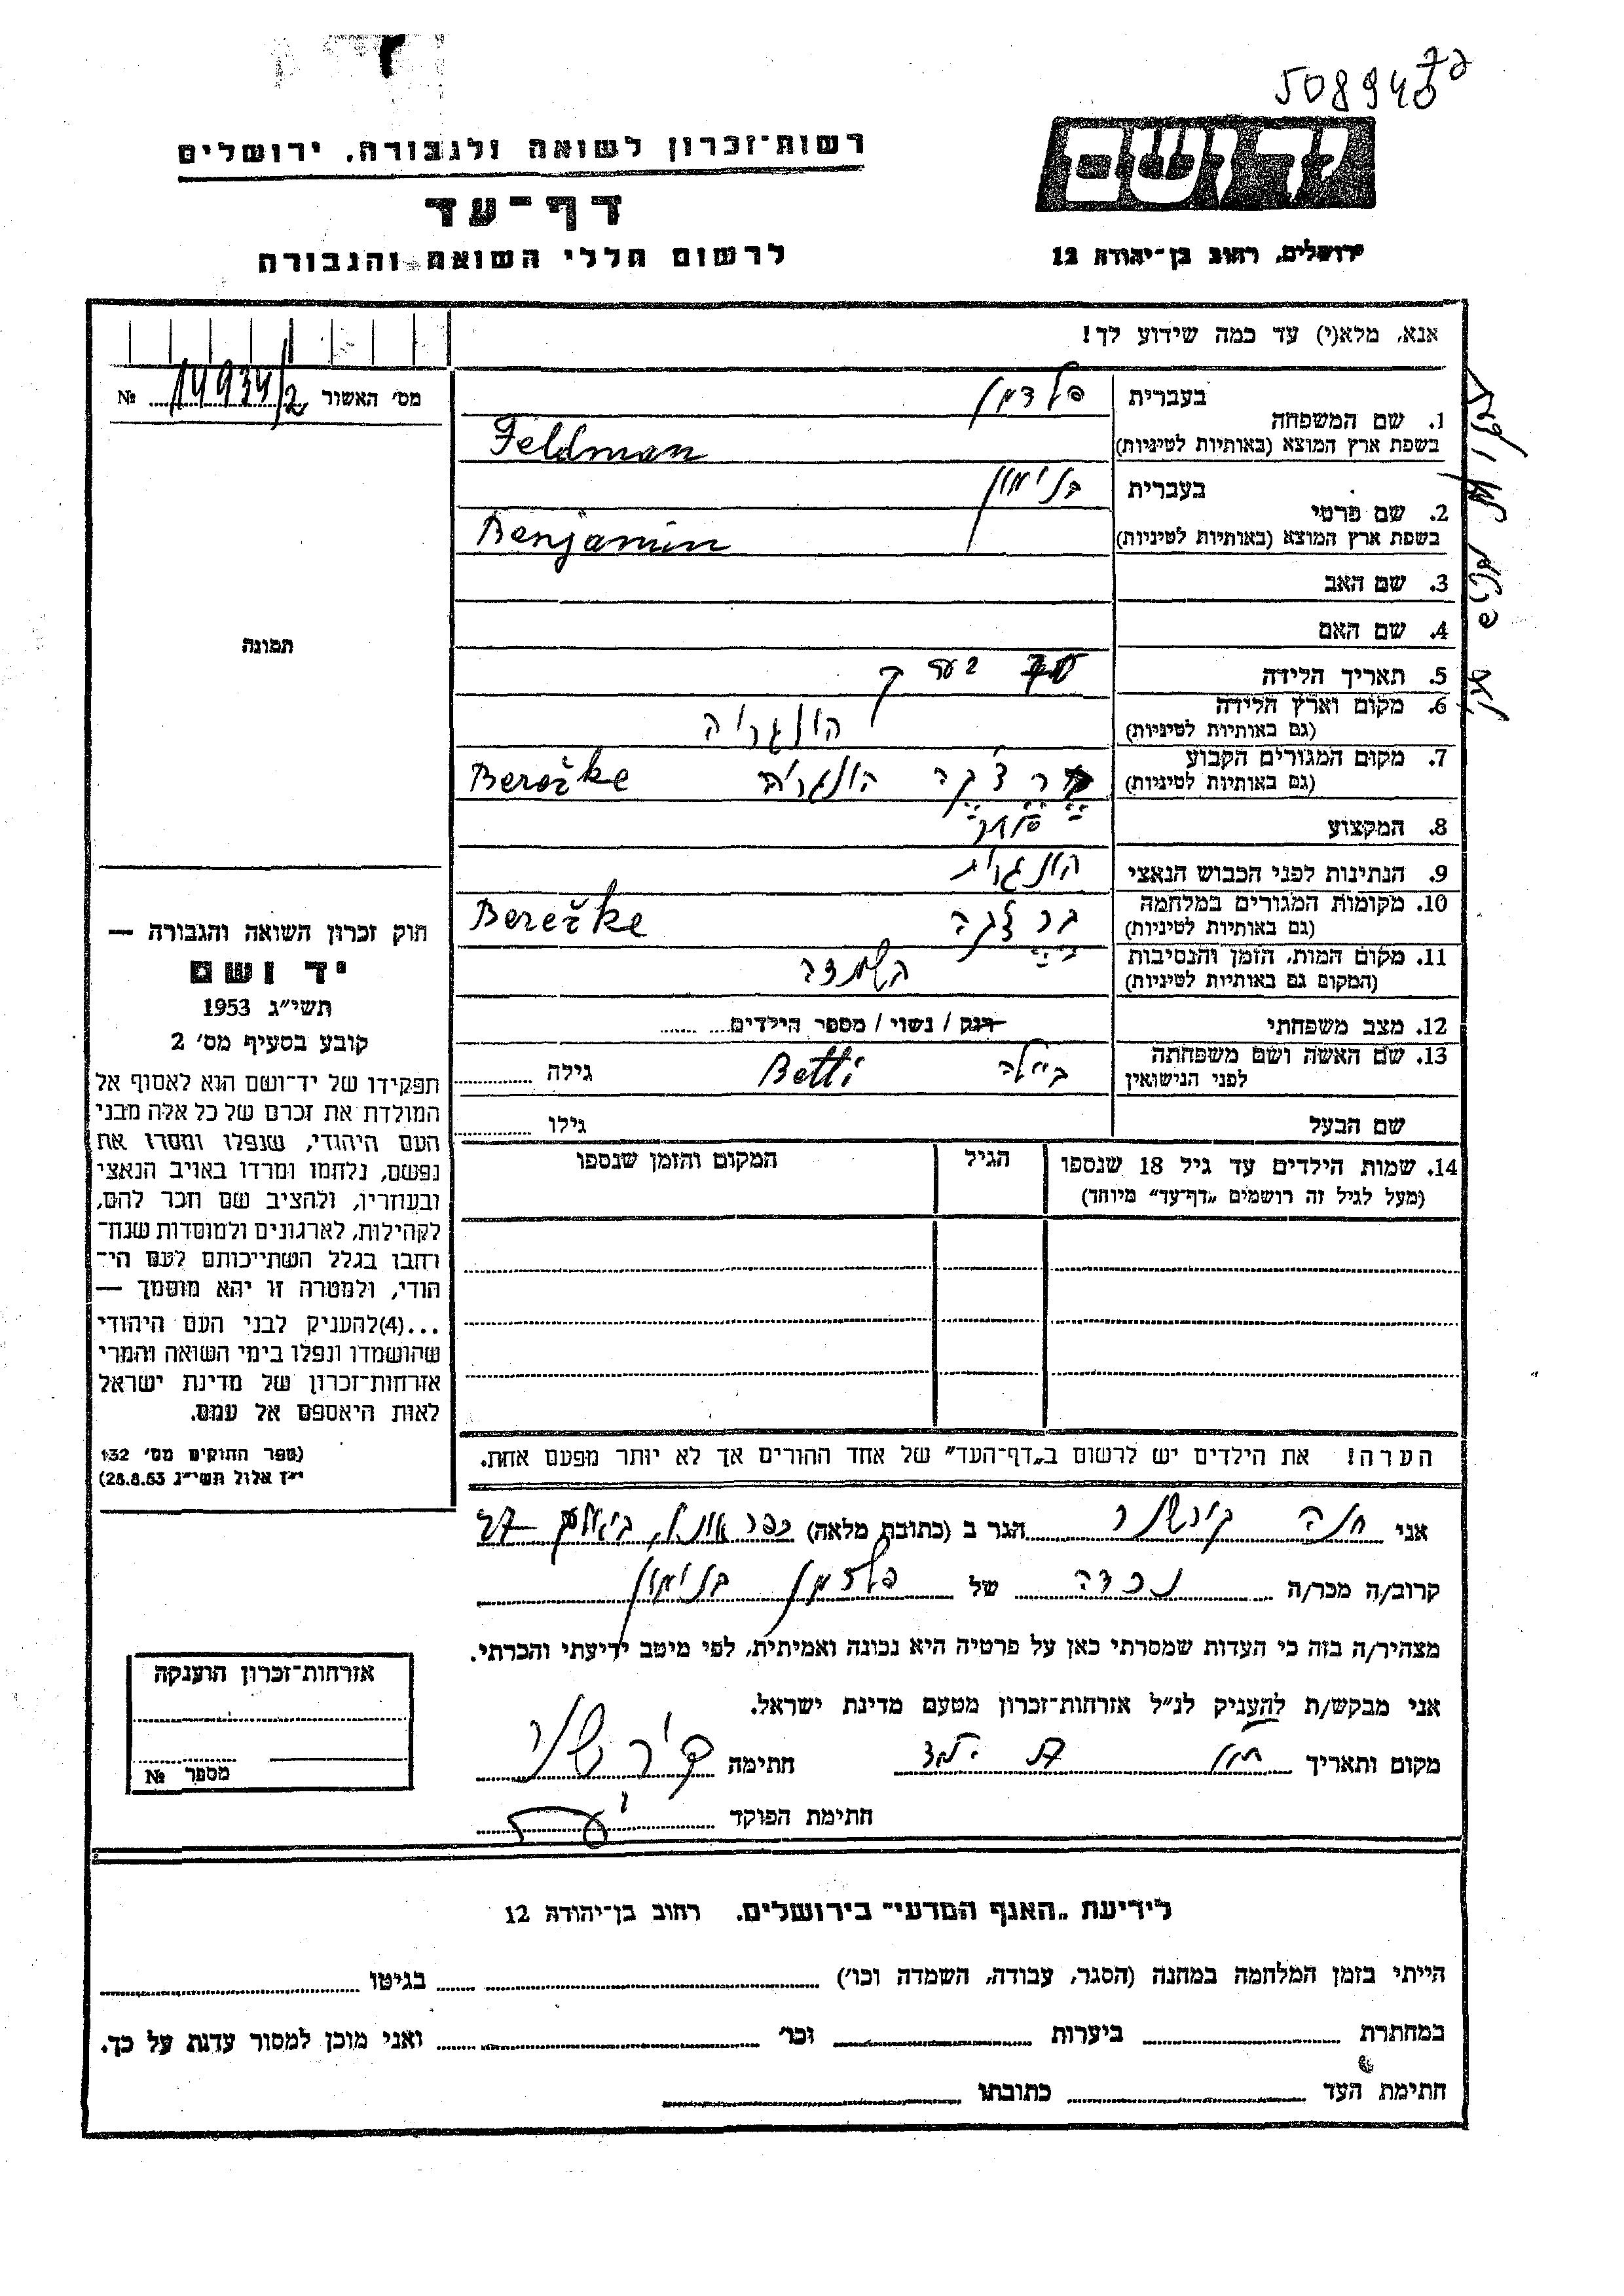 5089486
יד ושם
רשות־זכרון לשואה ולגבורה, ירושלים
דף־עד
לרשום חללי השואה והגבורה
ירושלים, רחוב בן־יהודה 12
אנא, מלא(י) עד כמה שידוע לך!
מס׳ האשור 14934/2 №
1. שם המשפחה
בעברית פלדמן
בשפת ארץ המוצא (באותיות לטיניות) Feldman
2. שם פרטי
בעברית בנימין
בשפת ארץ המוצא (באותיות לטיניות) Benjamin
3. שם האב
4. שם האם
5. תאריך הלידה
6. מקום וארץ הלידה
(גם באותיות לטיניות) הונגריה
7. מקום המגורים הקבוע
(גם באותיות לטיניות) הונגריה Berežke
8. המקצוע סוחר
9. הנתינות לפני הכבוש הנאצי הונגרית
10. מקומות המגורים במלחמה
(גם באותיות לטיניות) Berežke
11. מקום המות, הזמן והנסיבות
(המקום גם באותיות לטיניות) השמדה
12. מצב משפחתי רווק / נשוי / מספר הילדים
13. שם האשה ושם משפחתה
לפני הנישואין ביילה Betti גילה
שם הבעל גילו
14. שמות הילדים עד גיל 18 שנספו
(מעל לגיל זה רושמים „דף־עד” מיוחד)
הגיל
המקום והזמן שנספו
הערה! את הילדים יש לרשום ב„דף־העד” של אחד ההורים אך לא יותר מפעם אחת.
תמונה
חוק זכרון השואה והגבורה —
יד ושם
תשי״ג 1953
קובע בסעיף מס׳ 2
תפקידו של יד־ושם הוא לאסוף אל
המולדת את זכרם של כל אלה מבני
העם היהודי, שנפלו ומסרו את
נפשם, נלחמו ומרדו באויב הנאצי
ובעוזריו, ולהציב שם וזכר להם,
לקהילות, לארגונים ולמוסדות שנח־
רבו בגלל השתייכותם לעם הי־
הודי, ולמטרה זו יהא מוסמך —
...(4)להעניק לבני העם היהודי
שהושמדו ונפלו בימי השואה והמרי
אזרחות־זכרון של מדינת ישראל
לאות היאספם אל עמם.
(ספר החוקים מס׳ 132
י״ז אלול תשי״ג 28.8.53)
אני חנה קירשנר הגר ב (כתובת מלאה) כפר 27
קרוב/ה מכר/ה נכדה של פלדמן בנימין
מצהיר/ה בזה כי העדות שמסרתי כאן על פרטיה היא נכונה ואמיתית, לפי מיטב ידיעתי והכרתי.
אני מבקש/ת להעניק לנ״ל אזרחות־זכרון מטעם מדינת ישראל.
מקום ותאריך חתימה
חתימת הפוקד
אזרחות־זכרון הוענקה
מספר №
לידיעת „האגף המדעי” בירושלים, רחוב בן־יהודה 12
הייתי בזמן המלחמה במחנה (הסגר, עבודה, השמדה וכו׳) בגיטו
במחתרת ביערות וכו׳ ואני מוכן למסור עדות על כך.
חתימת העד כתובתו